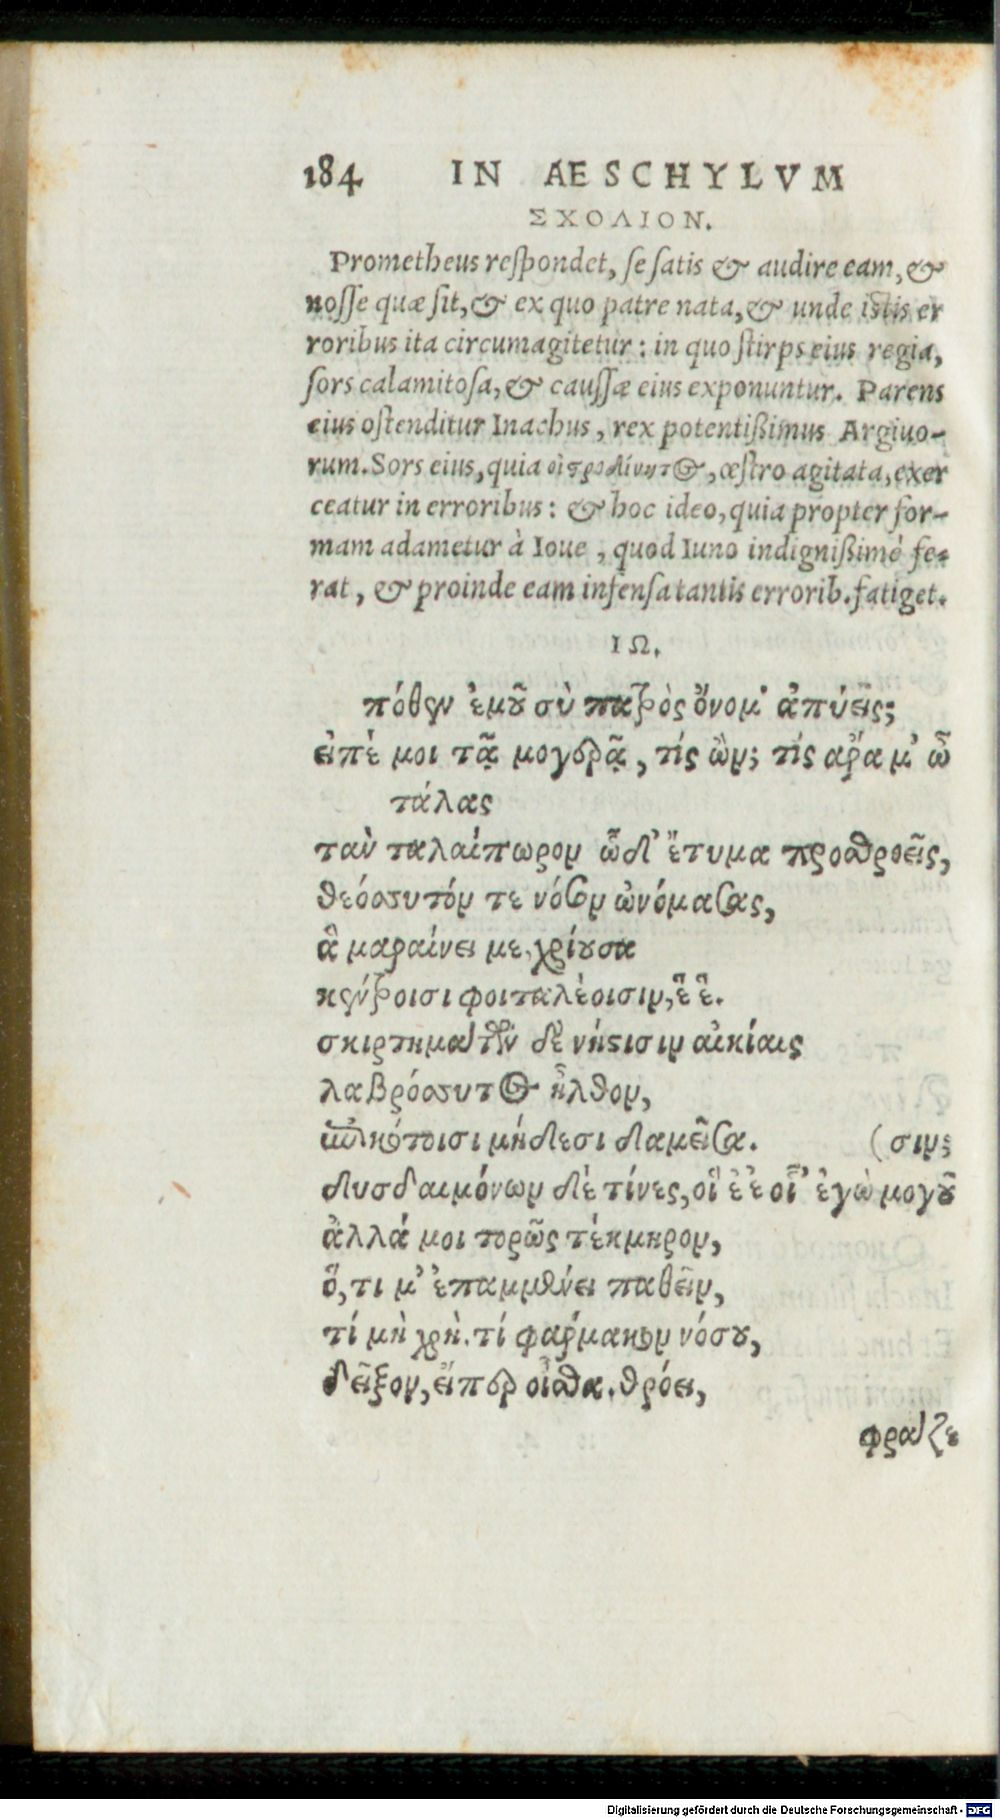 184 IN AESCHYLVM
ΣΧΟΛΙΟΝ.
Prometheus respondet, se satis & audire eam, &
nosse quæ sit, & ex quo patre nata, & unde istis er
roribus ita circumagitetur: in quo stirps eius regia,
sors calamitosa, & caussæ eius exponuntur. Parens
eius ostenditur Inachus, rex potentißimus Argiuo-
rum. Sors eius, quia οἰστροδίνητος, œstro agitata, exer
ceatur in erroribus: & hoc ideo, quia propter for-
mam adametur à Ioue, quod Iuno indignißimè fe-
rat, & proinde eam infensa tantis errorib. fatiget.
ΙΩ.
πόθεν ἐμοῦ σὺ πατρὸς ὄνομ' ἀπύεις;
εἰπέ μοι τᾷ μογερᾷ, τίς ὢν; τίς ἄρα μ' ὦ
τάλας
τὰν ταλαίπωρον ὧδ' ἔτυμα προσθροεῖς,
θεόσυτόν τε νόσον ὠνόμασας,
ἃ μαραίνει με, χρίουσα
κέντροισι φοιταλέοισιν, ἒ ἔ.
σκιρτημάτων δὲ νήστισιν αἰκίαις
λαβρόσυτος ἦλθον,
ἐπικότοισι μήδεσι δαμεῖσα. (σιν;
δυσδαιμόνων δὲ τίνες, οἳ ἐ ἐ οἷ' ἐγὼ μογοῦ
ἀλλά μοι τορῶς τέκμηρον,
ὅ, τι μ' ἐπαμμένει παθεῖν,
τί μὴ χρὴ. τί φάρμακον νόσου,
δεῖξον, εἴπερ οἶσθα. θρόει,
φράζε
Digitalisierung gefördert durch die Deutsche Forschungsgemeinschaft - DFG